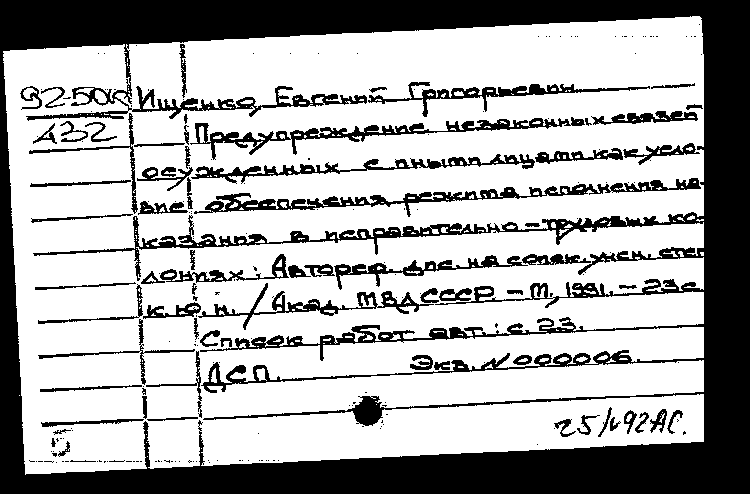 92-50к Ищенко, Евгений Григорьевич
432 Предупреждение незаконных связей
осужденных с иными лицами как усло-
вие обеспечения режима исполнения на-
казания в исправительно-трудовых ко-
лониях: Автореф. дис. на соиск. учен. степ
к.ю.н. / Акад. МВД СССР - М, 1991. - 23 с
Список работ авт.: с. 23.
ДСП. Экз. № 000006.
5 92АС.